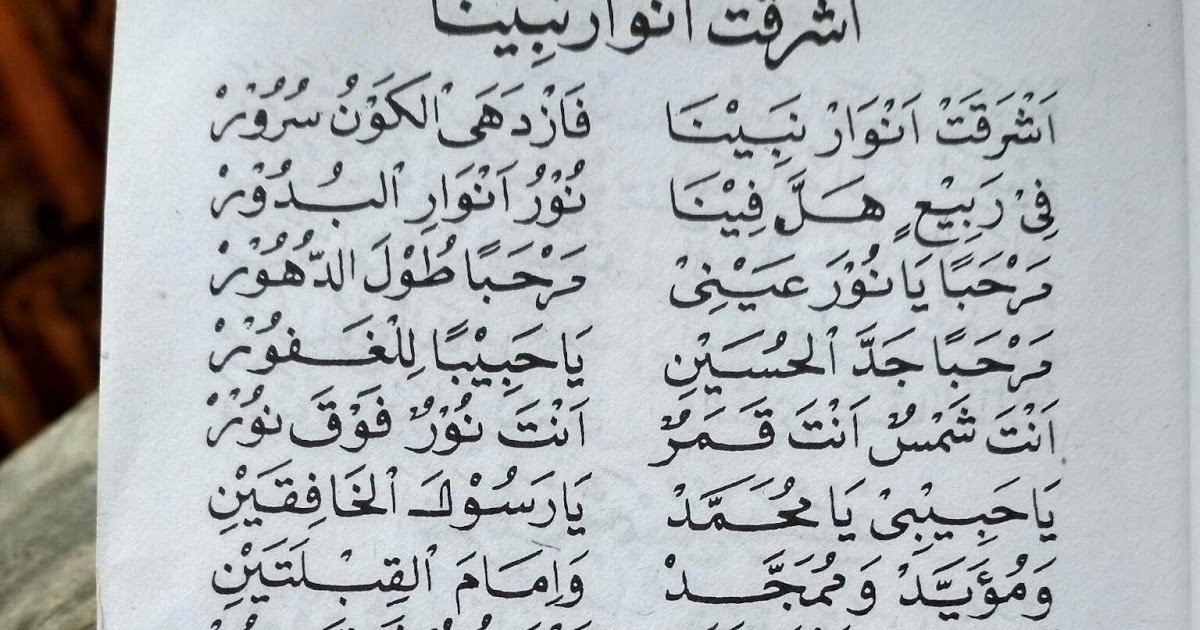 اشرقت انوار نبينا
اَشْرَقَتْ اَنْوَارْ نَبِيْنَا فَازْدَهَى الْكَوْنُ سُرُوْرْ
فِيْ رَبِيْعٍ هَلَّ فِيْنَا نُوْرُ اَنْوَارِ الْبُدُوْرْ
مَرْحَبًا يَا نُوْرَ عَيْنِيْ مَرْحَبًا طُوْلَ الدُّهُوْرْ
مَرْحَبًا جَدَّ الْحُسَيْنِ يَا حَبِيْبًا لِلْغَفُوْرْ
اَنْتَ شَمْسٌ اَنْتَ قَمَرٌ اَنْتَ نُوْرٌ فَوْقَ نُوْرْ
يَا حَبِيْبِيْ يَا مُحَمَّدْ يَا رَسُوْلَ الْخَافِقَيْنِ
وَمُؤَيَّدْ وَمُمَجَّدْ وَاِمَامَ الْقِبْلَتَيْنِ